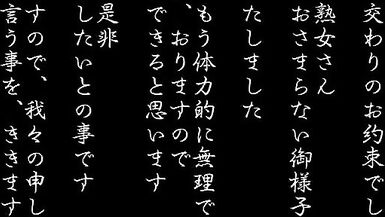 交わりのお約束でし
熟女さん
おさまらない御様子
たしました
もう体力的に無理で
、おりますので
できると思います
是非
したいとの事です
すので、我々の申し
言う事を、ききます